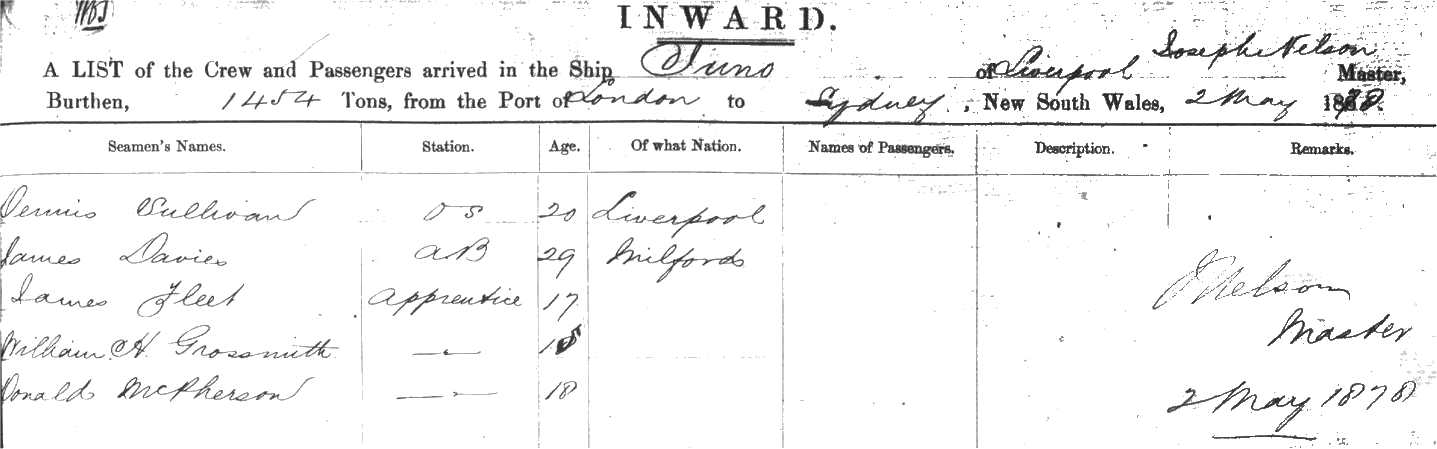 INWARD.
Joseph Nelson
A LIST of the Crew and Passengers arrived in the Ship Juno of Liverpool Master,
Burthen, 1454 Tons, from the Port of London to Sydney, New South Wales, 2 May 1878.
Seamen's Names. Station. Age. Of what Nation. Names of Passengers. Description. Remarks.
Dennis Sullivan OS 20 Liverpool
James Davies AB 29 Milford
James Fleet Apprentice 17
J Nelson
William H. Grossmith —„—
Master
Donald McPherson —„— 18
2 May 1878